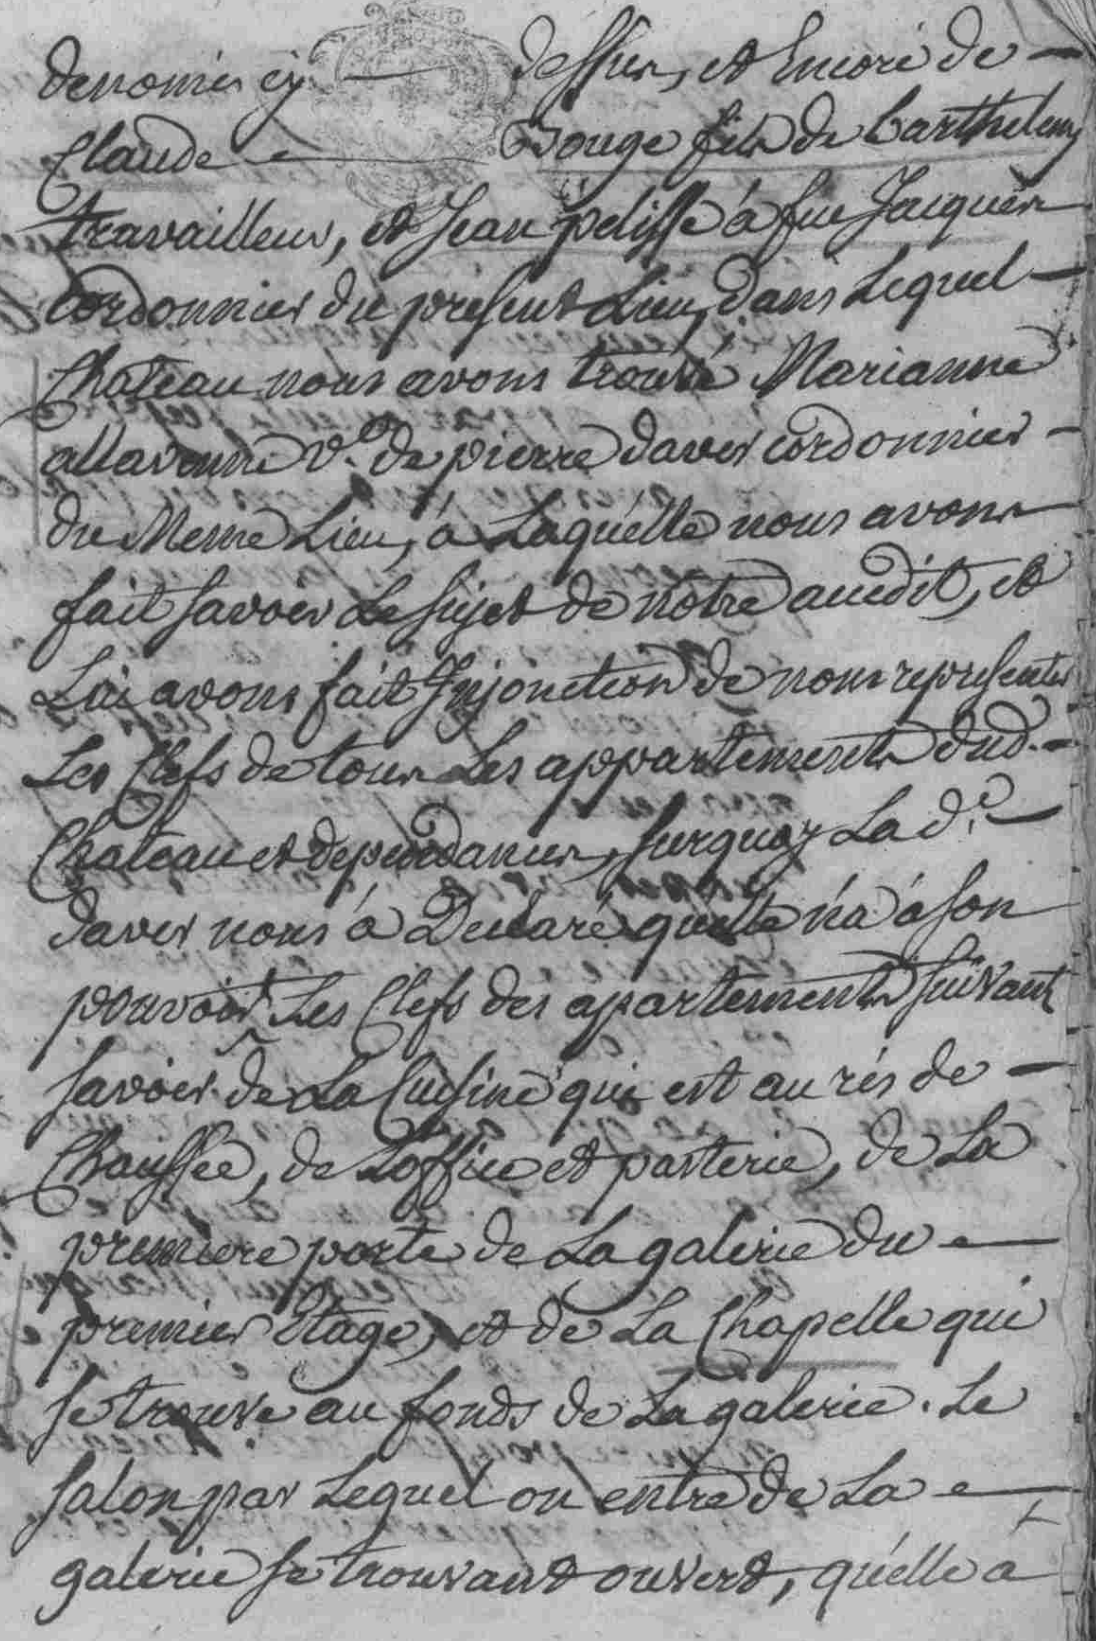 denomés cy dessus, et Encore de
Claude Bouge fils de barthelemy
travailleur, et Jean pelisse à feu Jacques
Cordonnier du present Lieu, dans Lequel
Chateau nous avons trouvé Marianne
allavenne v.e de pierre daver cordonnier
du Meme Lieu, à Laquelle nous avons
fait savoir Le sujet de notre audit, et
Lui avons fait Injonction de nous representer
Les Clefs de tous Les appartements dud.
Chateau et dependances, surquoy La d.e
daver nous à Declaré quelle n'a à son
pouvoir Les Clefs des apartements suivant
savoir de La Cuisine qui est au rés de
Chaussée, de L'office et pasterie, de La
premiere porte de La galerie du
premier Etage, et de La Chapelle qui
se trouve au fonds de La galerie. Le
salon par Lequel on entre de La
galerie se trouvant ouvert, qu'elle à